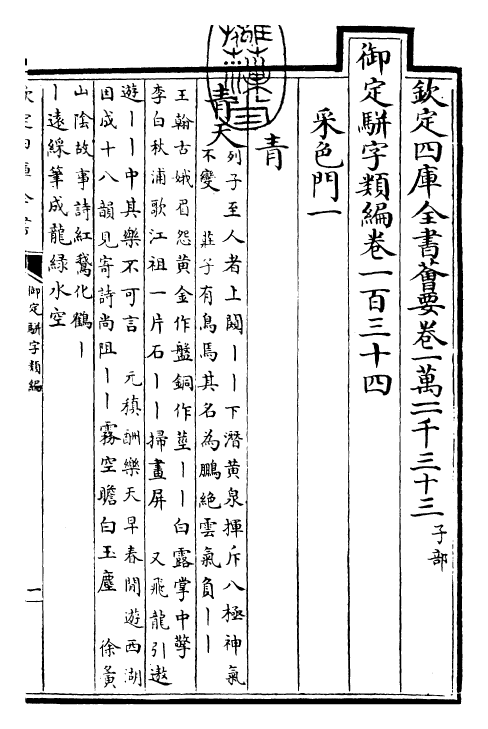 欽定四庫全書薈要卷一萬二千三十三 子部
御定駢字類編卷一百三十四
采色門一
青
青天 列子至人者上闚丨丨下潛黃泉揮斥八極神氣
不變 莊子有鳥焉其名為鵬絕雲氣負丨丨
王翰古娥眉怨黃金作盤銅作莖丨丨白露掌中擎
李白秋浦歌江祖一片石丨丨掃畫屏 又飛龍引遨
遊丨丨中其樂不可言 元稹酬樂天早春閒遊西湖
因成十八韻見寄詩尚阻丨丨霧空瞻白玉塵 徐黃
山陰故事詩紅鵞化鶴丨
丨遠綵筆成龍綠水空
欽定四庫全書
御定駢字類編
一